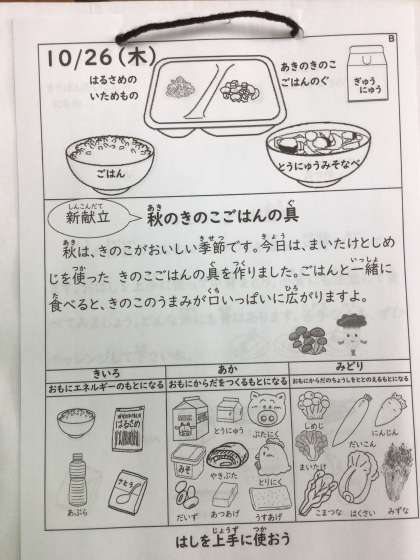 B
10/26(木)
はるさめの
いためもの
あきのきのこ
ごはんのぐ
ぎゅう
にゅう
ごはん
とうにゅうみそなべ
しんこんだて
新献立
あき ぐ
秋のきのこごはんの具
あき きせつ きょう
秋は、きのこがおいしい季節です。今日は、まいたけとしめ
つか ぐ つく いっしょ
じを使った きのこごはんの具を作りました。ごはんと一緒に
た くち ひろ
食べると、きのこのうまみが口いっぱいに広がりますよ。
きいろ
おもにエネルギーのもとになる
はるさめ
あぶら
さとう
あか
おもにからだをつくるもとになる
とうにゅう
ぶたにく
みそ
やきぶた
とりにく
だいず
あつあげ
うすあげ
みどり
おもにからだのちょうしをととのえるもとになる
しめじ
だいこん
にんじん
まいたけ
こまつな
はくさい
みずな
じょうず つか
はしを上手に使おう